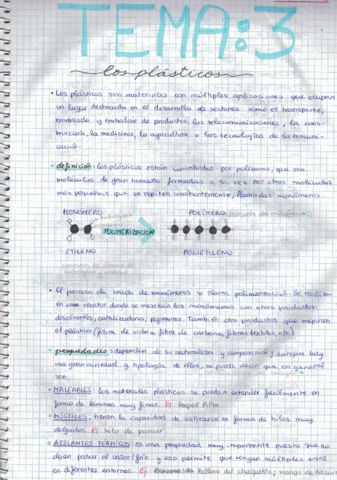 TEMA:3
los plásticos
• Los plásticos son materiales con múltiples aplicaciones que ocupan
un lugar destacado en el desarrollo de sectores como el transporte,
envasado y embalaje de productos, las telecomunicaciones, la cons-
trucción, la medicina, la agricultura o las tecnologías de la comuni-
cación.
- definición: los plásticos están constituidos por polímeros, que son
moléculas de gran tamaño formadas a su vez por otras moléculas
más pequeñas que se repiten constantemente, llamadas monómeros.
MONÓMERO POLÍMERO
POLIMERIZACIÓN
ETILENO POLIETILENO
• El proceso de unión de monómeros se llama polimerización. Se realiza
en unos reactor donde se mezclan los monómeros con otros productos:
disolventes, catalizadores, pigmentos. También otros productos que mejoran
el plástico (fibra de vidrio, fibra de carbono, fibras textiles, etc)
- propiedades: dependen de su naturaleza y composición; aunque hay
una gran variedad y tipología de ellos, se puede decir que en general
son:
• MALEABLES: los materiales plásticos se pueden extender fácilmente en
forma de láminas muy finas. Papel Film
• DÚCTILES: tienen la capacidad de estirarse en forma de hilos muy
delgados. hilo de pescar
• AISLANTES TÉRMICOS: es una propiedad muy importante puesto que no
dejan pasar el calor/frío y eso permite que tengan múltiples usos
en diferentes entornos. chaqueta; mango de